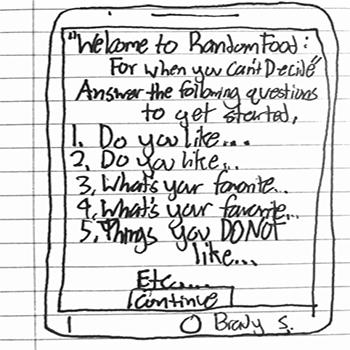 "Welcome to Random Food:
For when you Can't Decide"
Answer the following questions
to get started.
1. Do you like...
2. Do you like...
3. What's your favorite...
4. What's your favorite...
5. Things you DO NOT
like...
Etc....
Continue
Brady S.